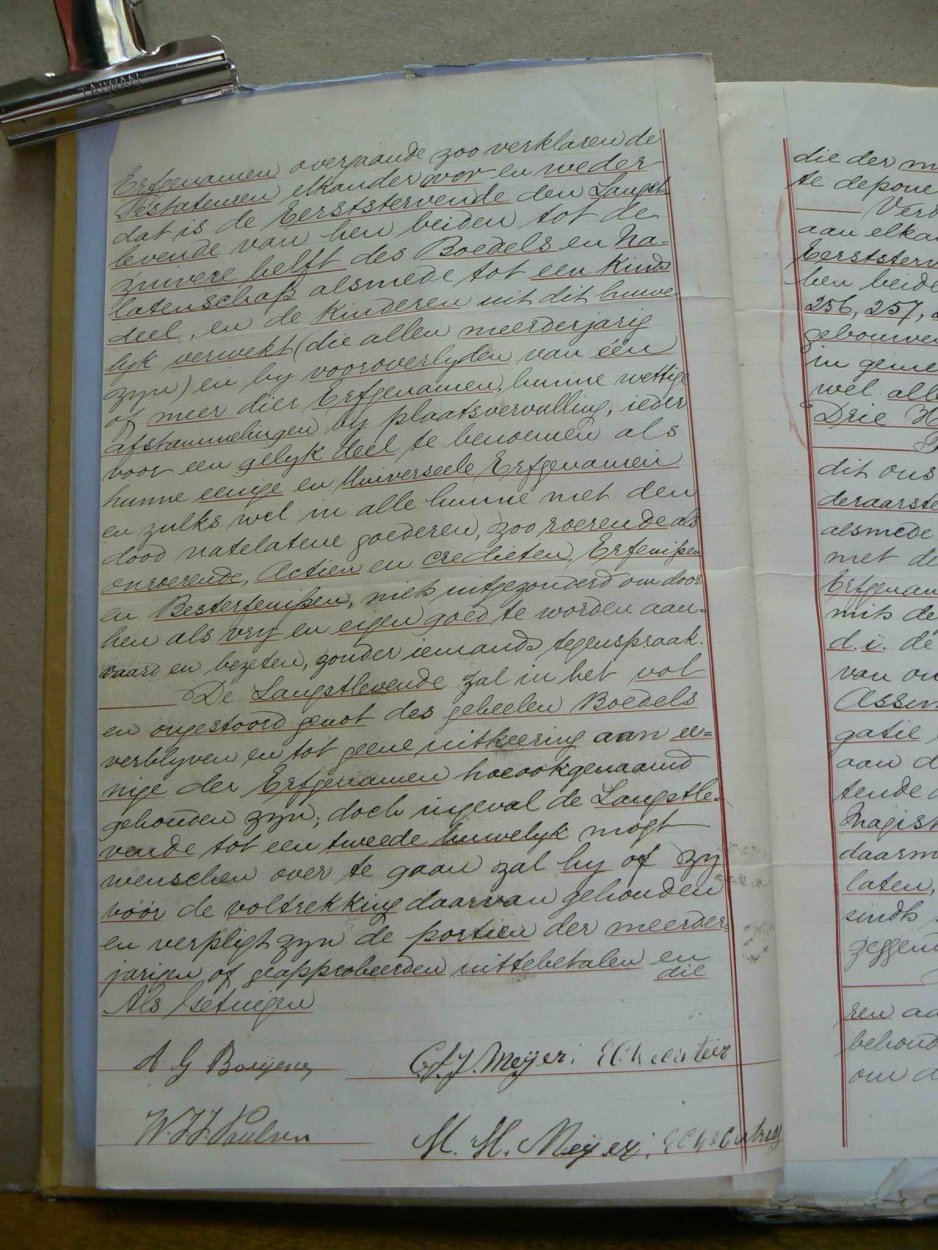 TAIWAN
Erfgenamen overgaande zoo verklaren de
Testateuren elkander over en weder
dat is de Eerststervende den Langst
levende van hen beiden tot de
zuivere helft des Boedels en Na-
latenschap alsmede tot een Kinds
deel, en de Kinderen uit dit huwe-
lijk verwekt (die allen meerderjarig
zijn) en bij vooroverlijden van één
of meer dier Erfgenamen, hunne wettige
afstammelingen by plaatsvervulling, ieder
voor een gelijk deel te benoemen als
hunne eenige en Universeele Erfgenamen
en zulks wel in alle hunne met den
dood natelatene goederen, zoo roerende als
onroerende, Actien en credieten, Erfenissen
en Besterfenissen, niets uitgezonderd om door
hen als vry en eigen goed te worden aan-
vaard en bezeten, zonder iemands tegenspraak.
De Langstlevende zal in het vol
en ongestoord genot des geheelen Boedels
verblyven en tot geene uitkeering aan ee-
nige der Erfgenamen hoeookgenaamd
gehouden zyn; doch ingeval de Langstle-
vende tot een tweede huwelyk mogt
wenschen over te gaan zal hy of zy
vóór de voltrekking daarvan gehouden
en verpligt zyn de portien der meerder-
jarigen of geapprobeerden uittebetalen en
die
Als Getuigen
A G
W. F. J. Paulsen
G. H. J. Meyer:
M. M. Meyer:
die der m
te depone
Verd
aan elka
Eerststerv
hen beide
256, 257,
gebouwe
in geme
wel alle
Drie H
dit ons
deraarste
alsmede
met de
Erfgenam
mits de
d.i. de
van on
Assen
gatie
aan d
tende
Magist
daarm
laten,
sinds
zeggen
ren aa
behoud
om a